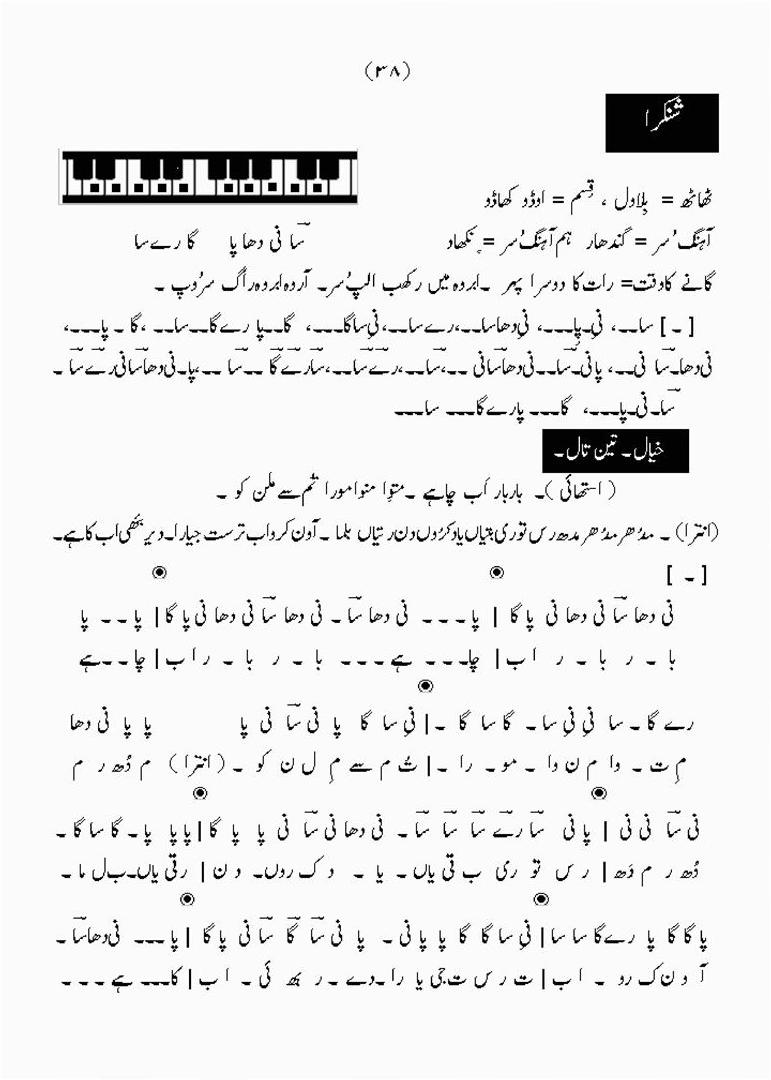 (۳۸)
شنکرا
ٹھاٹھ = بِلاول ، قِسم = اوڈو کھاڈو
آہنگ سُر = گندھار ہم آہنگ سُر = نِکھاد
سا نی دھا پا گا رے سا
گانے کا وقت = رات کا دوسرا پہر ۔ ابروہ میں رکھب الپ سُر۔ آروہ ابروہ راگ سرُوپ ۔
[ ۔ ] سا۔۔، نی۔پا۔۔۔، نی دھا سا۔۔، رے سا۔۔، نی سا گا۔۔۔، گا۔۔پا رے گا۔۔سا۔۔ ،گا ۔ پا۔۔۔،
نی دھا۔سا نی۔۔، پا نی۔سا۔۔نی دھا سا نی ۔۔،سا۔۔،رے سا۔۔،سا رے گا ۔۔سا ۔۔،پا۔نی دھا سا نی رے سا ۔
سا۔نی۔پا۔۔۔، گا۔۔۔ پا رے گا۔۔۔ سا۔۔۔
خیال۔ تین تال۔
(استھائی)۔ بار بار اَب چاہے ۔متوا منوا مورا تُم سے ملن کو ۔
(انترا) ۔ مدُھر مدُھر مدھ رس توری بتیاں یاد کرُوں دن رتیاں بلما ۔ آون کرو اب ترست جیارا۔ دیر بھئی اب کاہے۔
[ ۔ ]
نی دھا سا نی دھا نی پا گا | پا ۔ ۔ ۔ نی دھا سا ۔ نی دھا سا نی دھا نی پا گا | پا ۔ ۔ پا
با ۔ ر با ۔ ر ا ب | چا۔ ۔ ۔ ہے ۔ ۔ ۔ با ۔ ر با ۔ ر ا ب | چا ۔ ۔ہے
رے گا ۔ سا نی نی سا ۔ گا سا گا ۔ | نی سا گا پا نی سا نی پا پا پا نی دھا
م ت ۔ وا م ن وا ۔ مو ۔ را ۔ | تُ م سے مِ ل ن کو ۔ (انترا) م دُھ ر م
نی سا نی نی | پا نی سا رے سا سا سا ۔ نی دھا نی سا نی پا پا گا | پا پا پا ۔ گا سا گا ۔
دُھ ر م دَھ | ر س تو ری ب تی یاں ۔ یا ۔ د ک روں۔ د ن | ر تی یاں۔ب ل ما ۔
پا گا گا پا رے گا سا سا | نی سا گا گا پا پا نی ۔ پا نی سا گا سا نی پا گا | پا ۔۔۔ نی دھا سا ۔
آ و ن ک رو ۔ ا ب | ت ر س ت جی یا را ۔ دے ۔ ر بھ ئی ۔ ا ب | کا ۔۔۔ ہے ۔ ۔ ۔